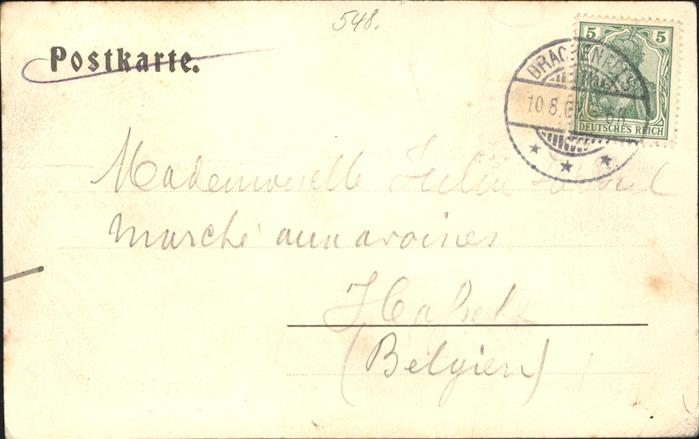 548.
Postkarte.
5 5
DRACHENFELS
10.8.0
DEUTSCHES REICH
Mademoiselle Julia
Marché aux avoines
Hasselt
(Belgien)